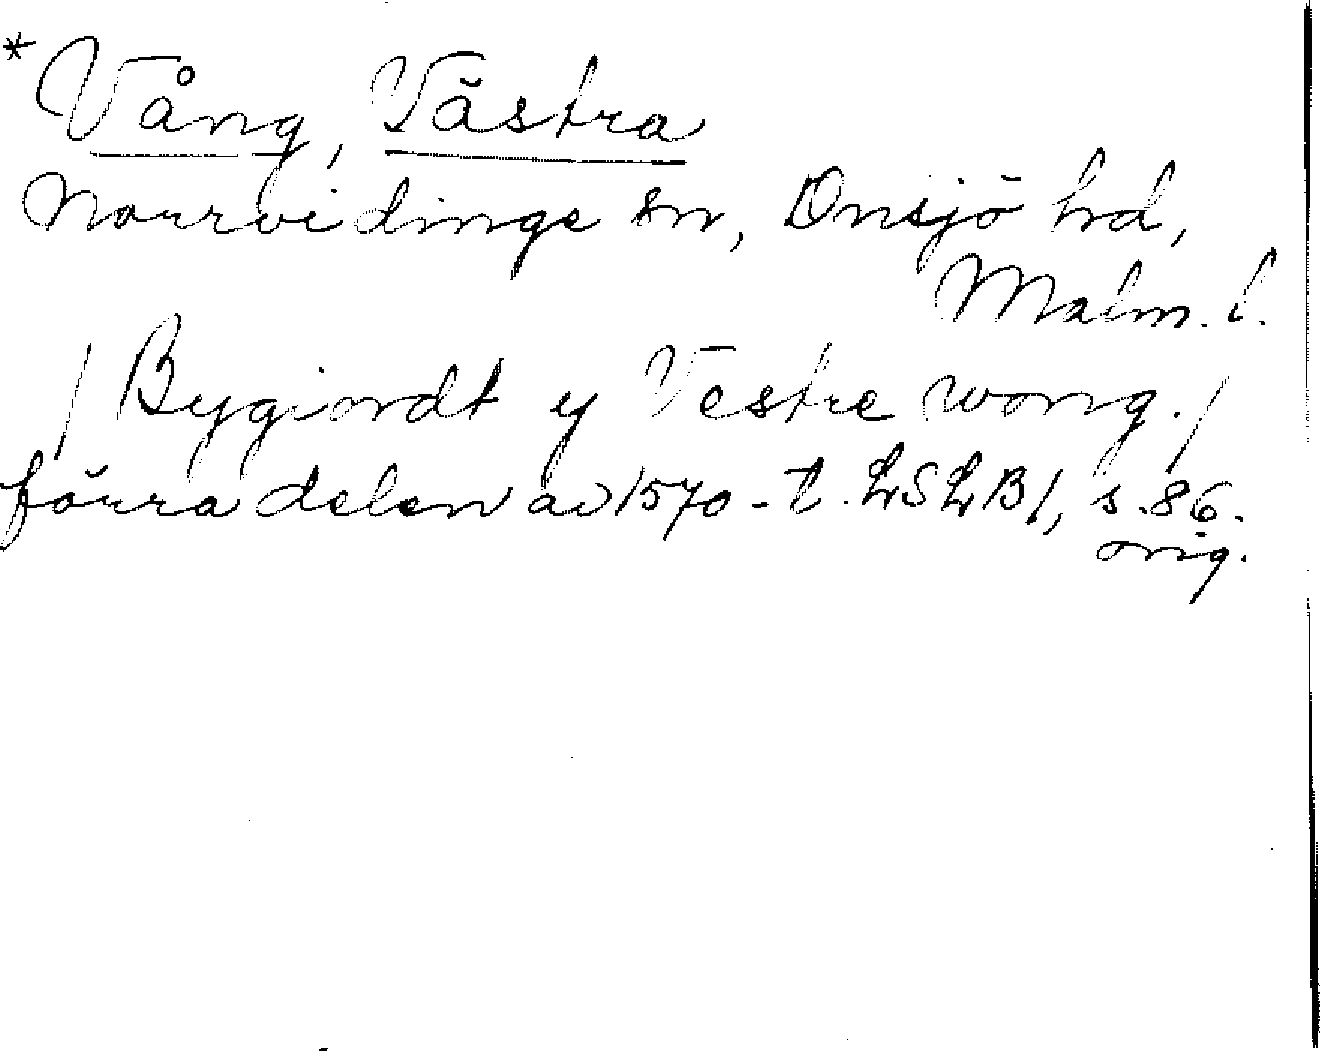 *Vång, Västra
Norrvidinge sn, Onsjö hd,
Malm. l.
/ Bygiordt y Vestre wong. /
förra delen av 1570-t. LSLB1, s. 86.
orig.